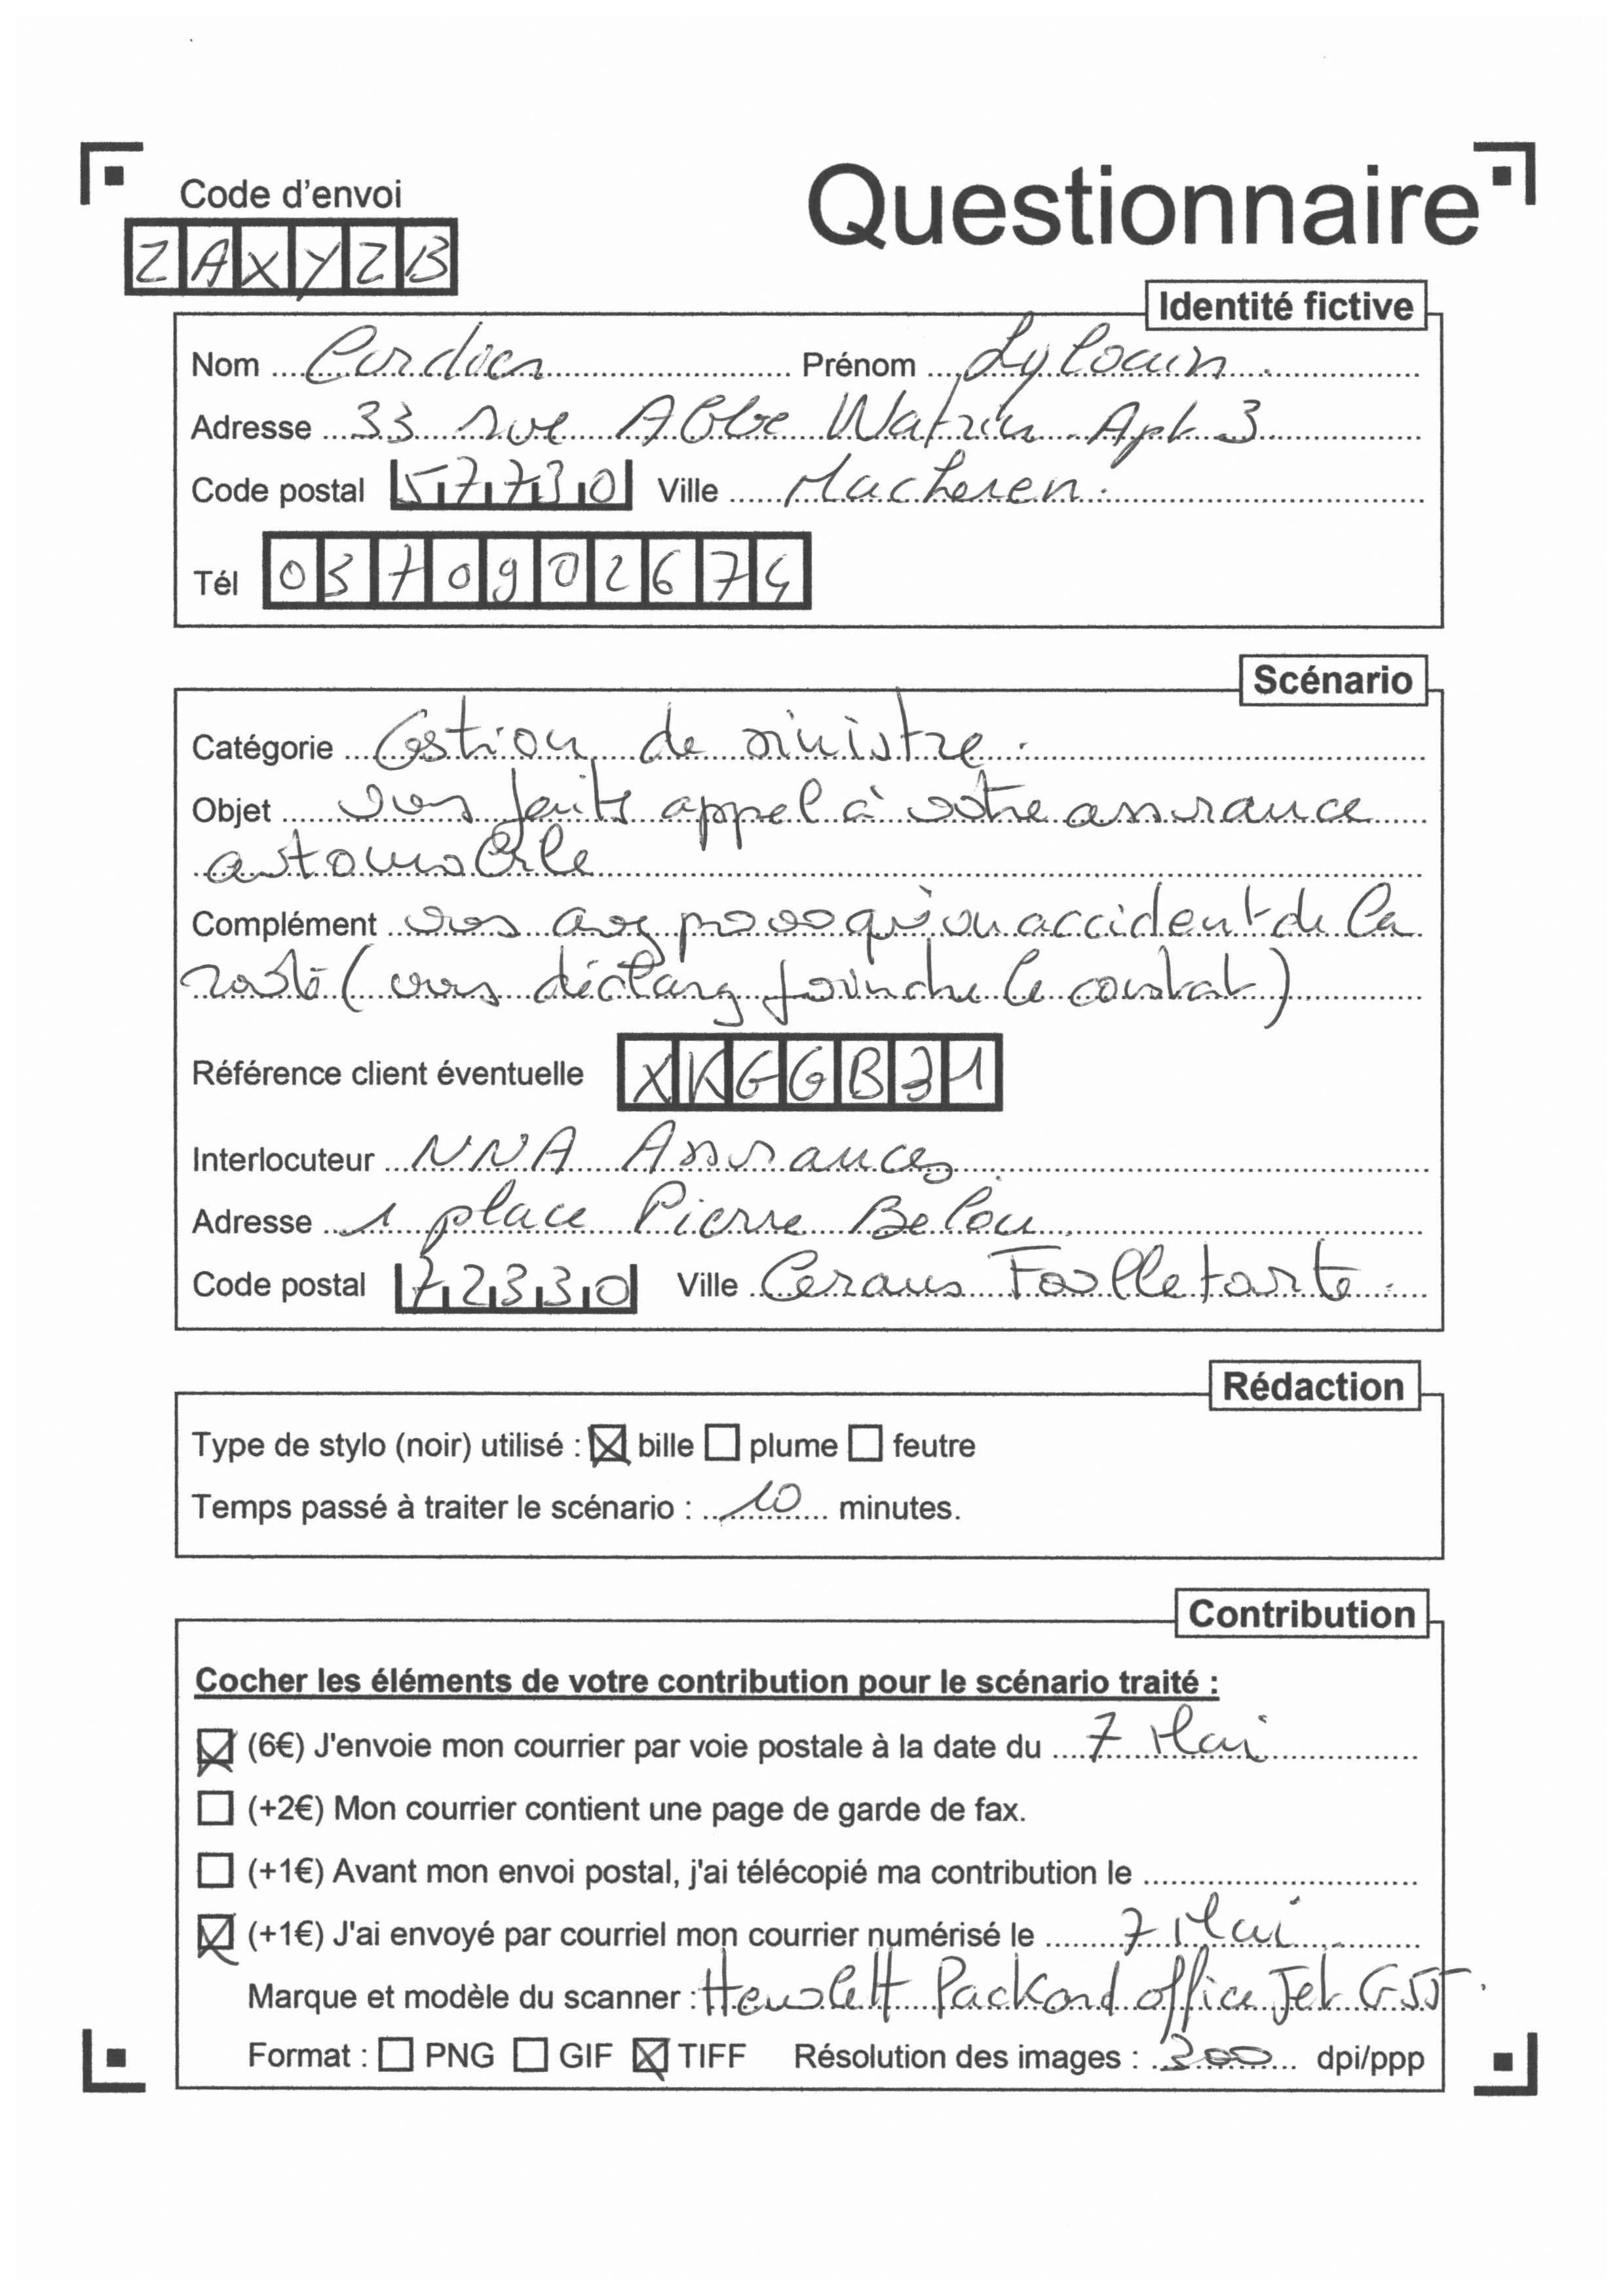 Code d'envoi
Questionnaire
ZAXYZB
Identité fictive
Nom Cordier Prénom Sylvain
Adresse 33 rue Abbe Watrin Apt 3
Code postal 57730 Ville Macheren
Tél 0370902674
Scénario
Catégorie Gestion de sinistre.
Objet vous faites appel à votre assurance
automobile
Complément vous avez provoqué un accident de la
route (vous déclarez joindre le constat)
Référence client éventuelle XKGGB31
Interlocuteur NNA Assurances
Adresse 1 place Pierre Belon
Code postal 72330 Ville Cerans Foulletourte.
Rédaction
Type de stylo (noir) utilisé : ☒ bille ☐ plume ☐ feutre
Temps passé à traiter le scénario : 10 minutes.
Contribution
Cocher les éléments de votre contribution pour le scénario traité :
☒ (6€) J'envoie mon courrier par voie postale à la date du 7 Mai
☐ (+2€) Mon courrier contient une page de garde de fax.
☐ (+1€) Avant mon envoi postal, j'ai télécopié ma contribution le
☒ (+1€) J'ai envoyé par courriel mon courrier numérisé le 7 Mai
Marque et modèle du scanner : Hewlett Packard office Jet G55.
Format : ☐ PNG ☐ GIF ☒ TIFF Résolution des images : 300 dpi/ppp